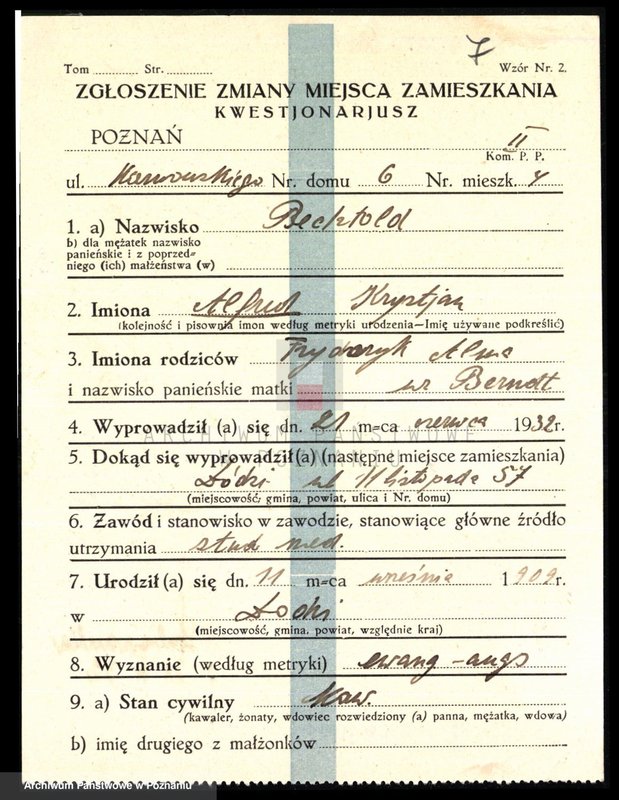 7
Tom ............ Str. ............ Wzór Nr. 2.
ZGŁOSZENIE ZMIANY MIEJSCA ZAMIESZKANIA
KWESTJONARJUSZ
POZNAŃ II
Kom. P. P.
ul. Nr. domu 6 Nr. mieszk. 4
1. a) Nazwisko Bechtold
b) dla mężatek nazwisko
panieńskie i z poprzed-
niego (ich) małżeństwa (w)
2. Imiona Alfred Krystjan
(kolejność i pisownia imon według metryki urodzenia—Imię używane podkreślić)
3. Imiona rodziców Fryderyk Alma
i nazwisko panieńskie matki ur. Berndt
4. Wyprowadził (a) się dn. 21 m-ca czerwca 1932r.
ARCHIWUM PAŃSTWOWE
W POZNANIU
5. Dokąd się wyprowadził(a) (następne miejsce zamieszkania)
Łódzi ul 11 listopada 57
(miejscowość, gmina, powiat, ulica i Nr. domu)
6. Zawód i stanowisko w zawodzie, stanowiące główne źródło
utrzymania stud med.
7. Urodził (a) się dn. 11 m-ca września 1909r.
w Łodzi
(miejscowość, gmina, powiat, względnie kraj)
8. Wyznanie (według metryki) ewang-augs
9. a) Stan cywilny Kaw.
(kawaler, żonaty, wdowiec rozwiedziony (a) panna, mężatka, wdowa)
b) imię drugiego z małżonków
Archiwum Państwowe w Poznaniu